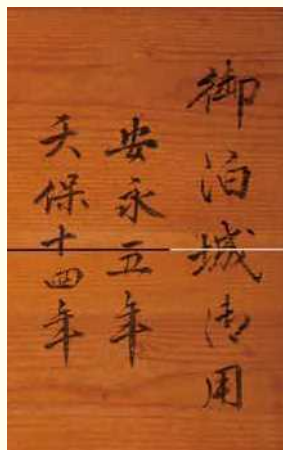 御泊城御用
安永五年
天保十四年